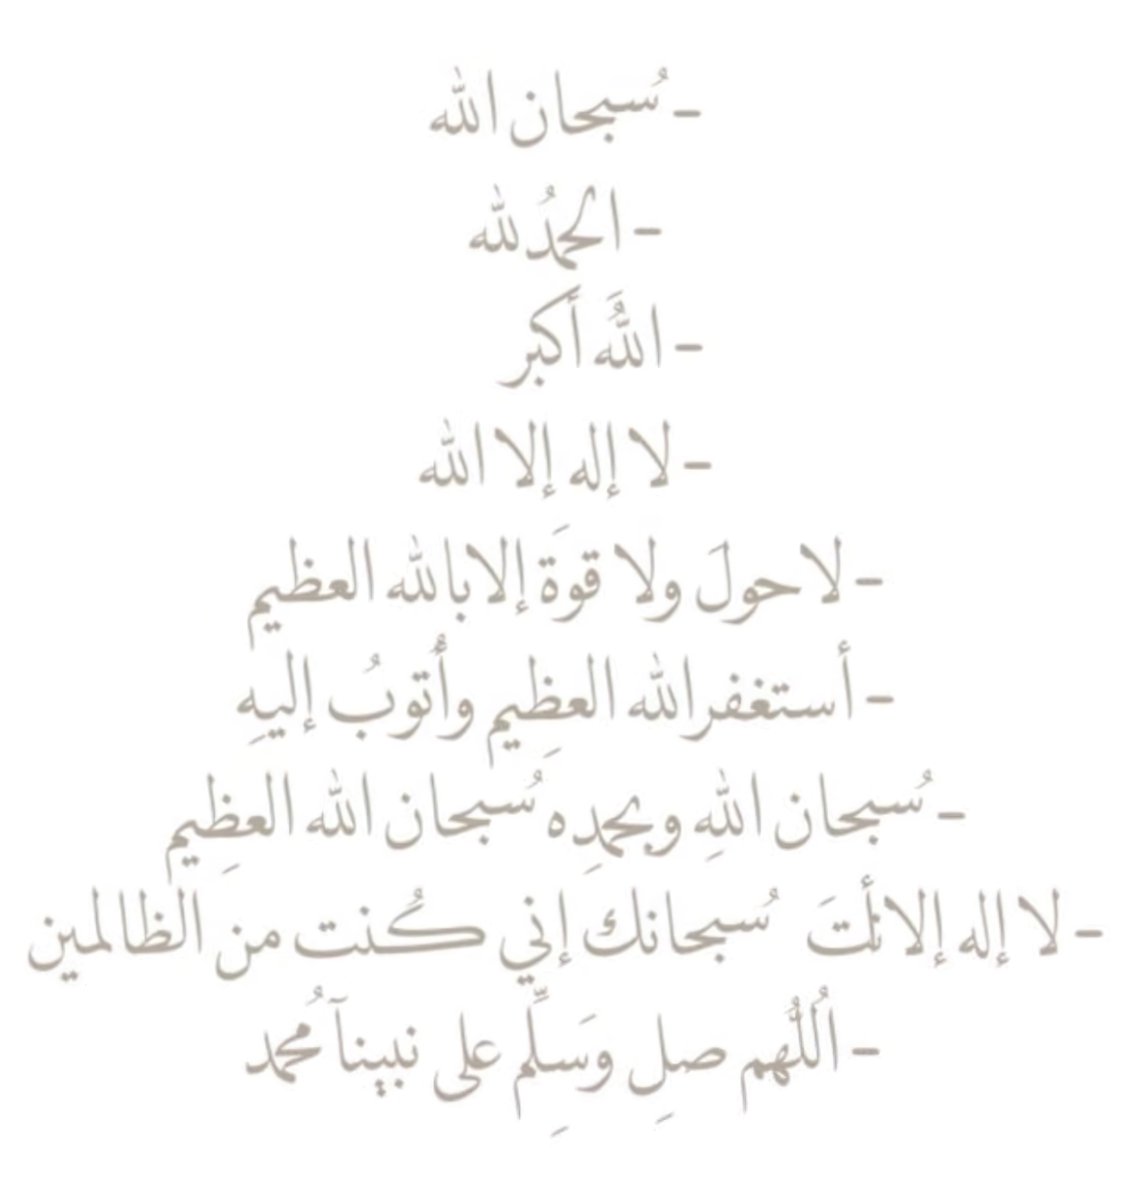 - سُبحان الله
- الحمدُلله
- اللَّه أكبر
- لا إله إلا الله
- لا حولَ ولا قوَة إلا بالله العظيم
- أستغفر الله العظِيم وأتوبُ إليهِ
- سُبحان اللهِ وبحمدِه سُبحان الله العظِيم
- لا إله إلا أنتَ سُبحانك إني كُنت من الظالمين
- اُللَّهم صلِ وَسِلِّم على نبينآ مُحمد